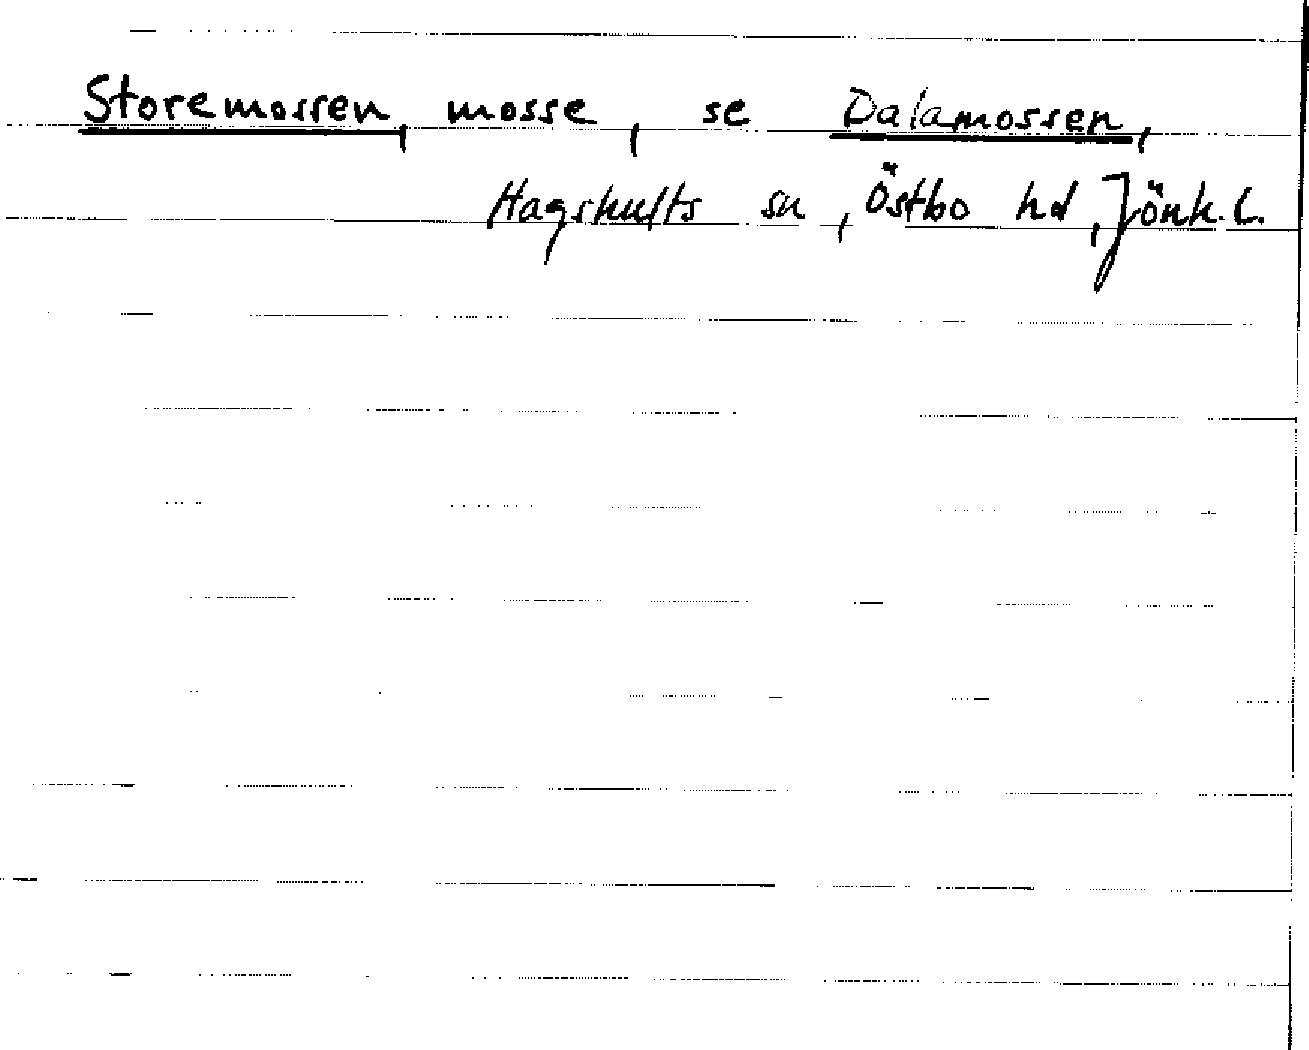 Storemossen, mosse, se Dalamossen,
Hagshults sn, Östbo hd, Jönk. l.